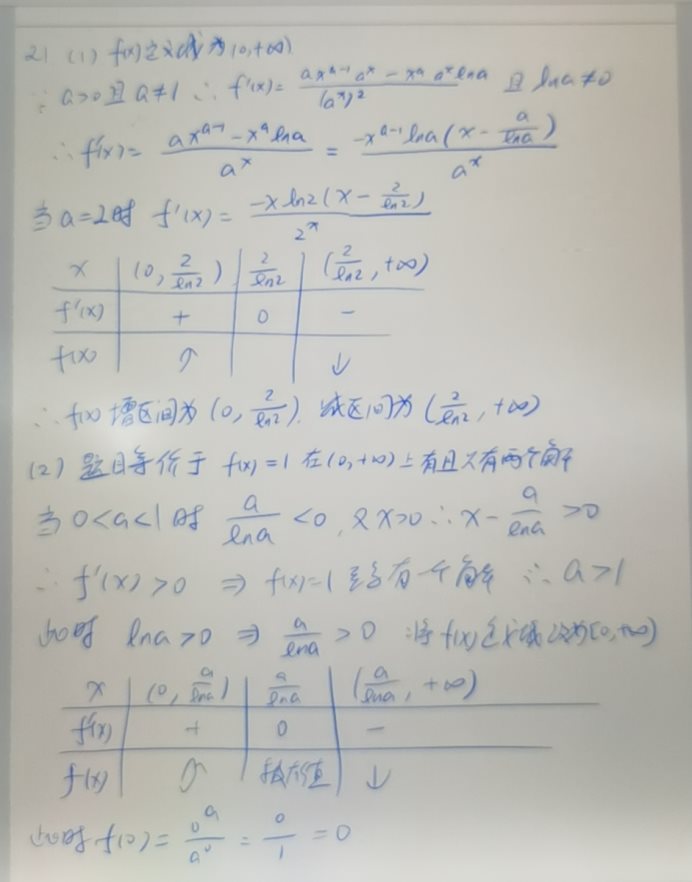 21 (1) f(x)定义域为(0,+∞)
∵ a>0且a≠1 ∴ f'(x)= (ax^(a-1) a^x - x^a a^x lna)/(a^x)^2 且 lna≠0
∴ f'(x)= (ax^(a-1) - x^a lna)/a^x = (-x^(a-1) lna (x - a/lna))/a^x
当a=2时 f'(x)= (-x ln2 (x - 2/ln2))/2^x
x | (0, 2/ln2) | 2/ln2 | (2/ln2, +∞)
f'(x) | + | 0 | -
f(x) | ↗ | | ↓
∴ f(x)增区间为 (0, 2/ln2). 减区间为 (2/ln2, +∞)
(2) 题目等价于 f(x)=1 在(0,+∞)上有且只有两个解
当 0<a<1 时 a/lna <0, 又x>0 ∴ x - a/lna >0
∴ f'(x)>0 ⇒ f(x)=1 至多有一个解 ∴ a>1
此时 lna>0 ⇒ a/lna >0 将f(x)定义域改为[0,+∞)
x | (0, a/lna) | a/lna | (a/lna, +∞)
f'(x) | + | 0 | -
f(x) | ↗ | 极大值 | ↓
此时 f(0)= 0^a/a^0 = 0/1 =0